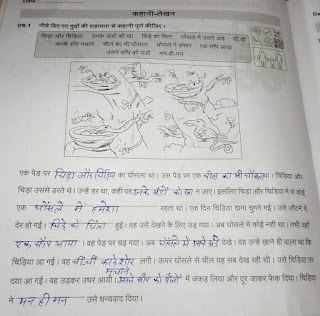 कहानी-लेखन
प्र.1 नीचे दिए गए मुद्दों की सहायता से कहानी पूर्ण कीजिए।
चिड़ा और चिड़िया उनके अंडों को खा चिड़े को चिंता घोंसले में उसने अंडे चीं-चीं
करके शोर मचाने चील का भी घोंसला घोंसले में हमेशा एक साँप आया
उसने साँप को पंजों मन-ही-मन
एक पेड़ पर चिड़ा और चिड़िया का घोंसला था। उस पेड़ पर एक चील का भी घोंसला था। चिड़िया और
चिड़ा उससे डरते थे। उन्हें डर था, कहीं वह उनके अंडों को खा न जाए। इसलिए चिड़ा और चिड़िया में से कोई
एक घोंसले में हमेशा रहता था। एक दिन चिड़िया दाना चुगने गई। उसे लौटने में
देर हो गई। चिड़े को चिंता हुई। वह उसे देखने के लिए उड़ गया। अब घोंसले में कोई नहीं था। तभी वहाँ
एक साँप आया। वह पेड़ पर चढ़ गया। अब घोंसले में उसने अंडे देखे। वह उन्हें खाने ही वाला था कि
चिड़िया आ गई। वह चीं चीं करके शोर मचाने लगी। ऊपर घोंसले से चील यह सब देख रही थी। उसे चिड़िया पर
दया आ गई। वह उड़कर उधर आयी। उसने साँप को पंजों में जकड़ लिया और दूर जाकर फेंक दिया। चिड़िया
ने मन ही मन उसे धन्यवाद दिया।